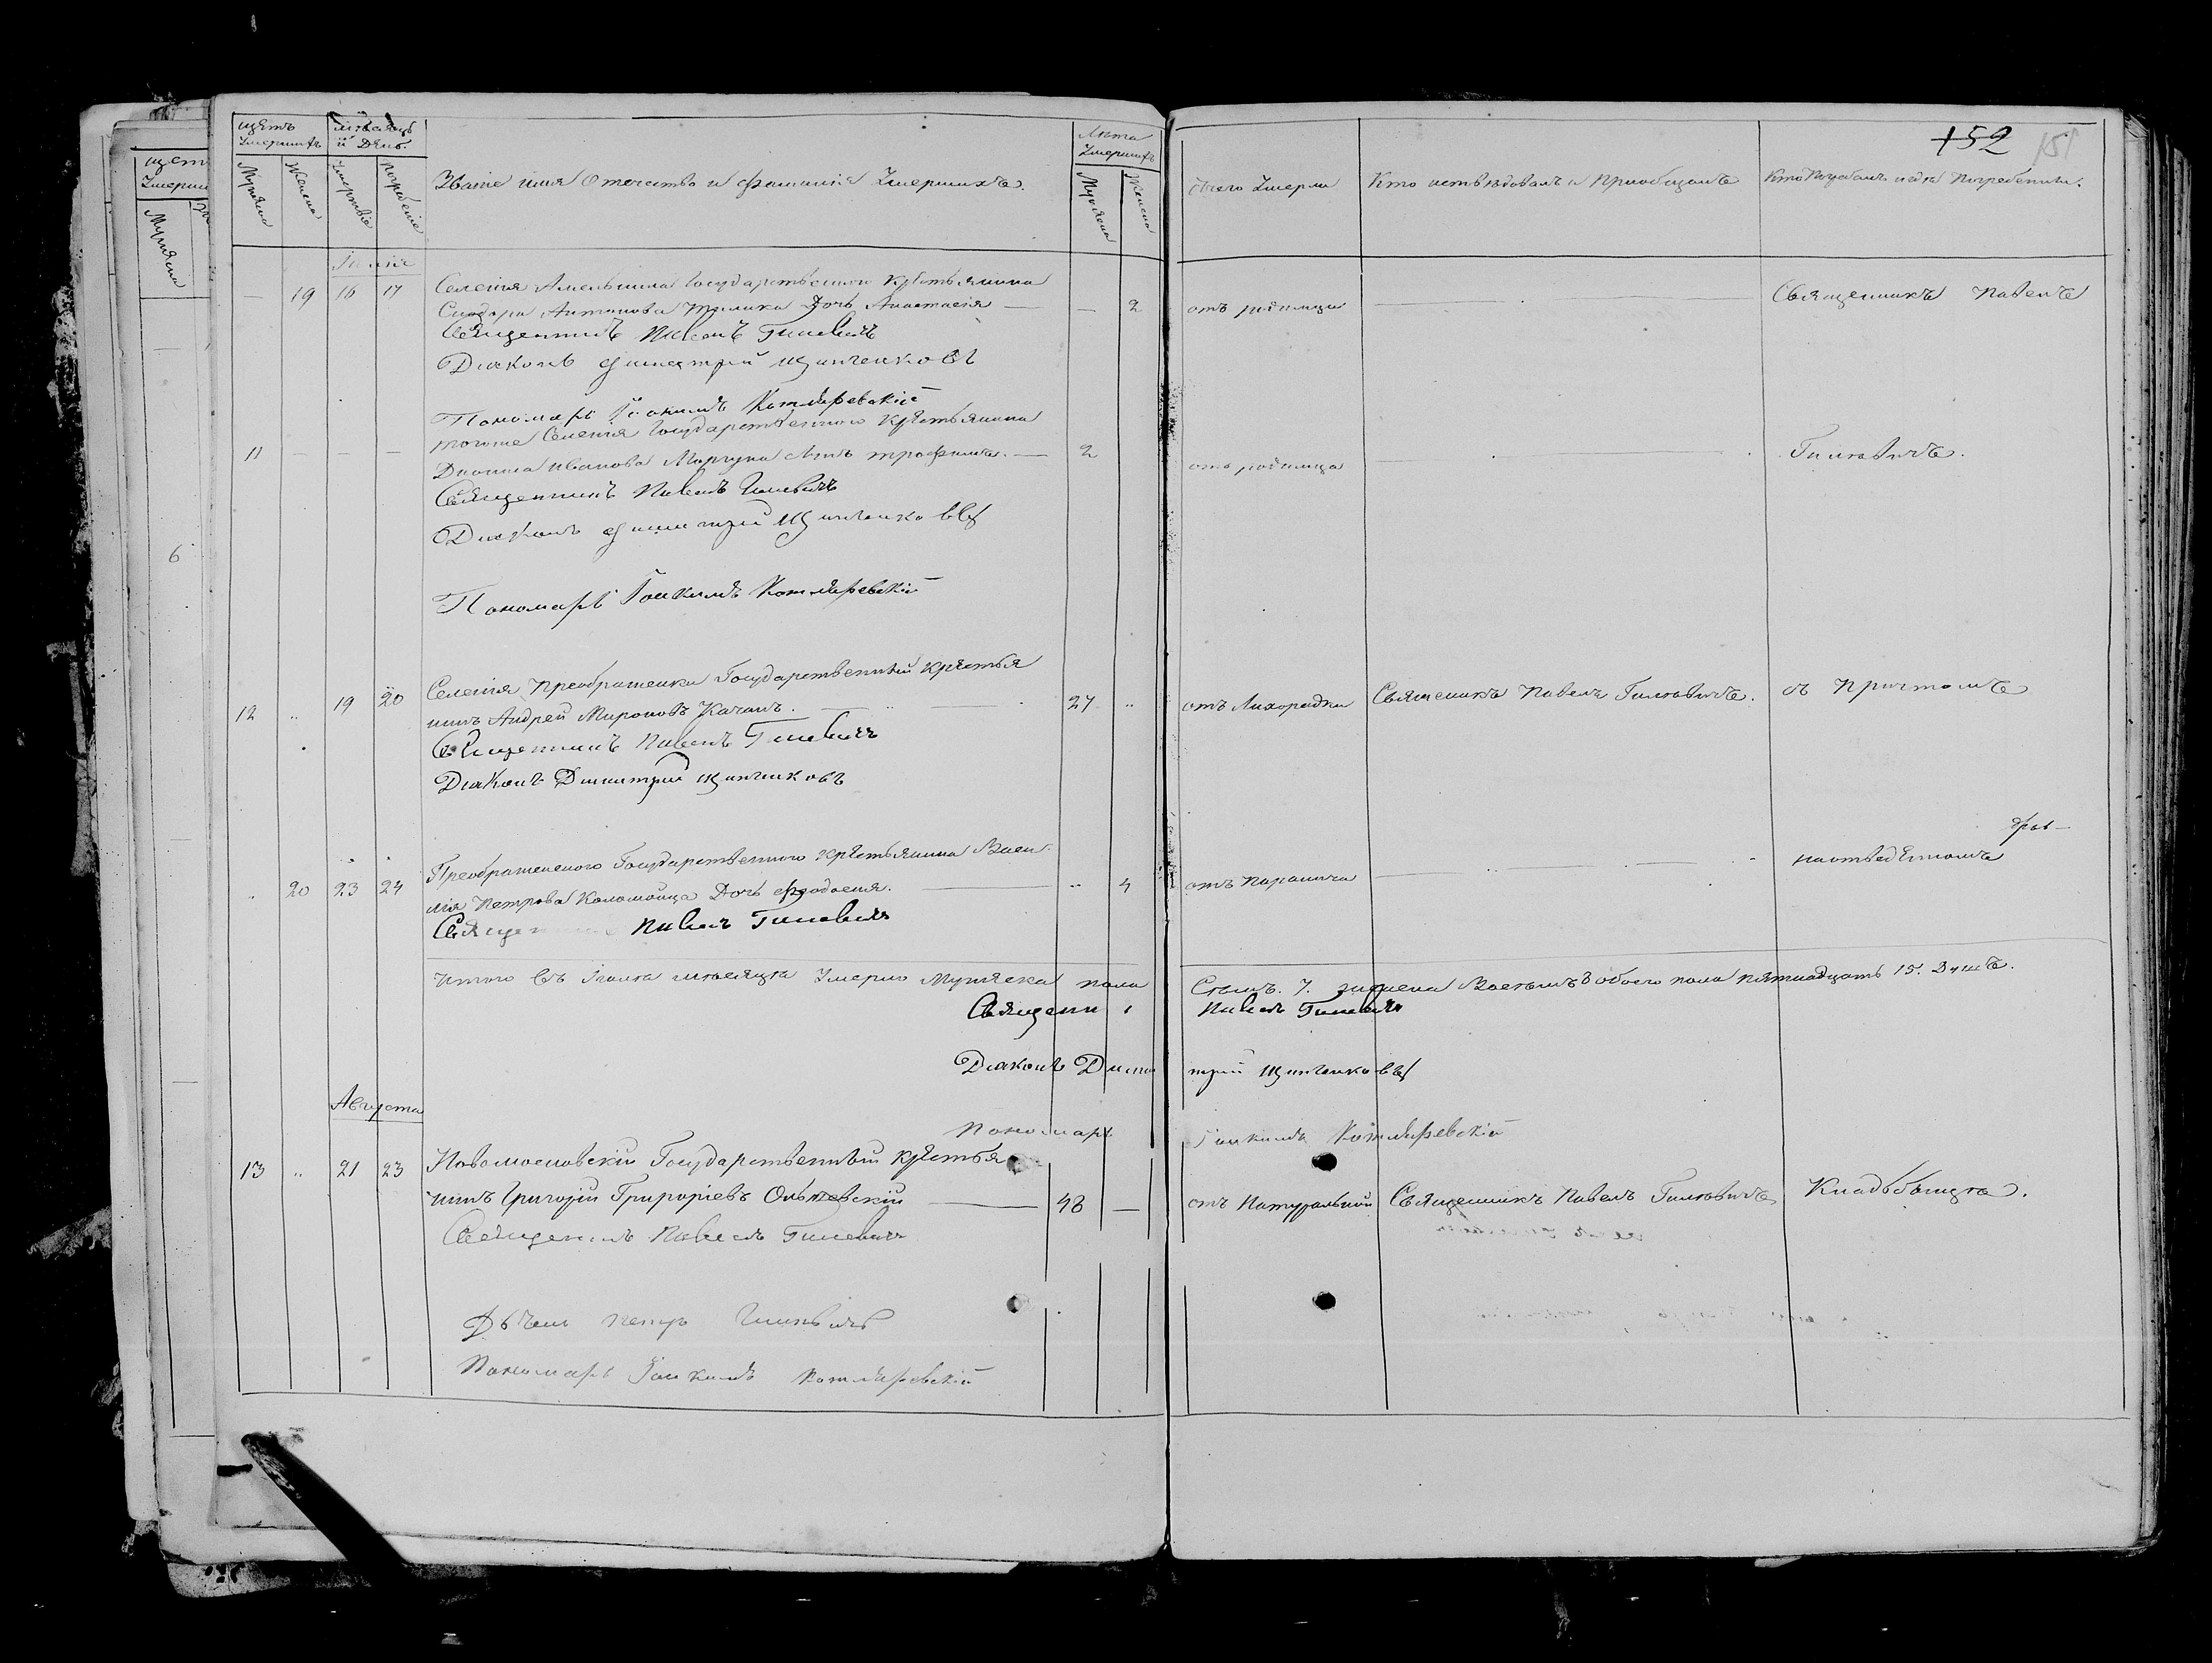 щетъ
Умершихъ
мѣсяцъ
и день.
Звание имя Отечество и фамилия Умершихъ.
Лѣта
Умершихъ
Мужеска
Женска
Умертвіе
Погребеніе
Мужеска
Женска
Отчего Умерли
Кто исповѣдовалъ и Приобщалъ
Кто Погребалъ и где Погребены.
152
151
Іюля
19 16 17 Селенія государственного крестьянина
Сидора Антонова дочь Анастасія — — 2 отъ родимца Священникъ Павелъ
Священникъ Павелъ Гилевичъ
Діаконъ Димитрій Щитченковъ
Пономарь Іоакимъ Котляревскій
11 — — — тогоже Селенія государственного крестьянина
Иванова сынъ трофимъ. — 2 отъ родимца Гилевичъ.
Священникъ Павелъ Гилевичъ
Діаконъ Димитрій Щитченковъ
Пономарь Іоакимъ Котляревскій
12 19 20 Селенія Преображенки Государственный крестья
нинъ Андрей Мироновъ Качанъ. 27 отъ Лихорадки Священникъ Павелъ Гилевичъ. съ Причтомъ
Священникъ Павелъ Гилевичъ
Діаконъ Димитрій Щитченковъ
20 23 24 Преображенского Государственного крестьянина Васи
лія Петрова Коломойца Дочь феодосія. 4 отъ
Священникъ Павелъ Гилевичъ
Итого въ Іюлѣ мѣсяцѣ Умерло Мужеска пола Семь. 7. женска Восемь 8 обоего пола пятнадцать 15. Душъ.
Священникъ Павелъ Гилевичъ
Діаконъ Димитрій Щитченковъ
Пономарь Іоакимъ Котляревскій
Августа
13 21 23 Новомосковскій Государственный крестья
нинъ Григорій Григоріевъ Ольшевскій — 48 — отъ Натуральной Священникъ Павелъ Гилевичъ Кладбищѣ.
Священникъ Павелъ Гилевичъ
Дьячекъ Петръ Гилевичъ
Пономарь Іоакимъ Котляревскій
щет
Умерши
Мужеска
6